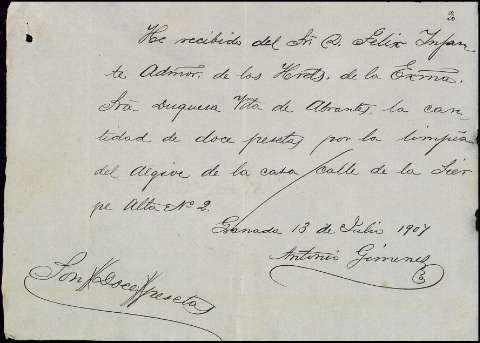 20
He recibido del Sr. D. Felix Infan-
te Admor. de los Hrds. de la Exma.
Sra Duquesa Vda de Abrantes, la can-
tidad de doce pesetas por la limpia
del Algive de la casa calle de la Sier-
pe Alta Nº 2.
Granada 13 de Julio 1907
Antonio Gimenez
Son//Doce//pesetas